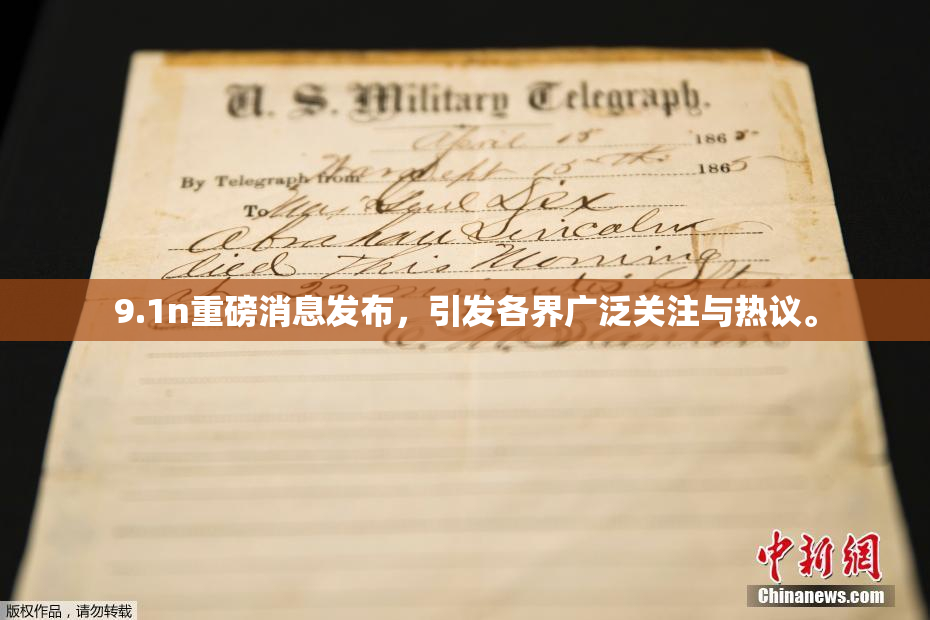 U. S. Military Telegraph.
April 15 1865
By Telegraph from War Dept 15th 1865
To Maj Genl Dix
Abraham Lincoln
died This Morning
at 22 minutes after
9.1n重磅消息发布，引发各界广泛关注与热议。
中新网
Chinanews.com
版权作品，请勿转载